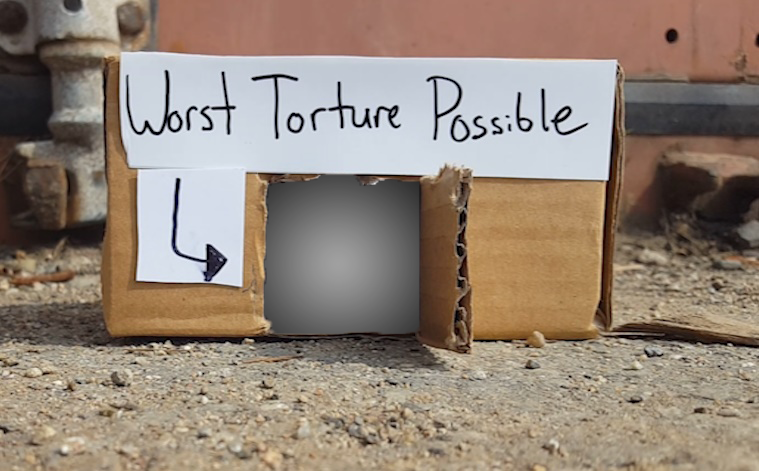 Worst Torture Possible